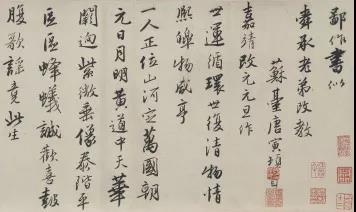 鄙作書似
舜承老弟改教
蘇臺唐寅頓首
嘉靖改元元旦作
世運循環世復清物情
熙皞物咸亨
一人正位山河定萬國朝
元日月明黃道中天華
闕迥紫微垂象泰階平
區區蜂蟻誠歡喜鼓
腹歌謠竟此生